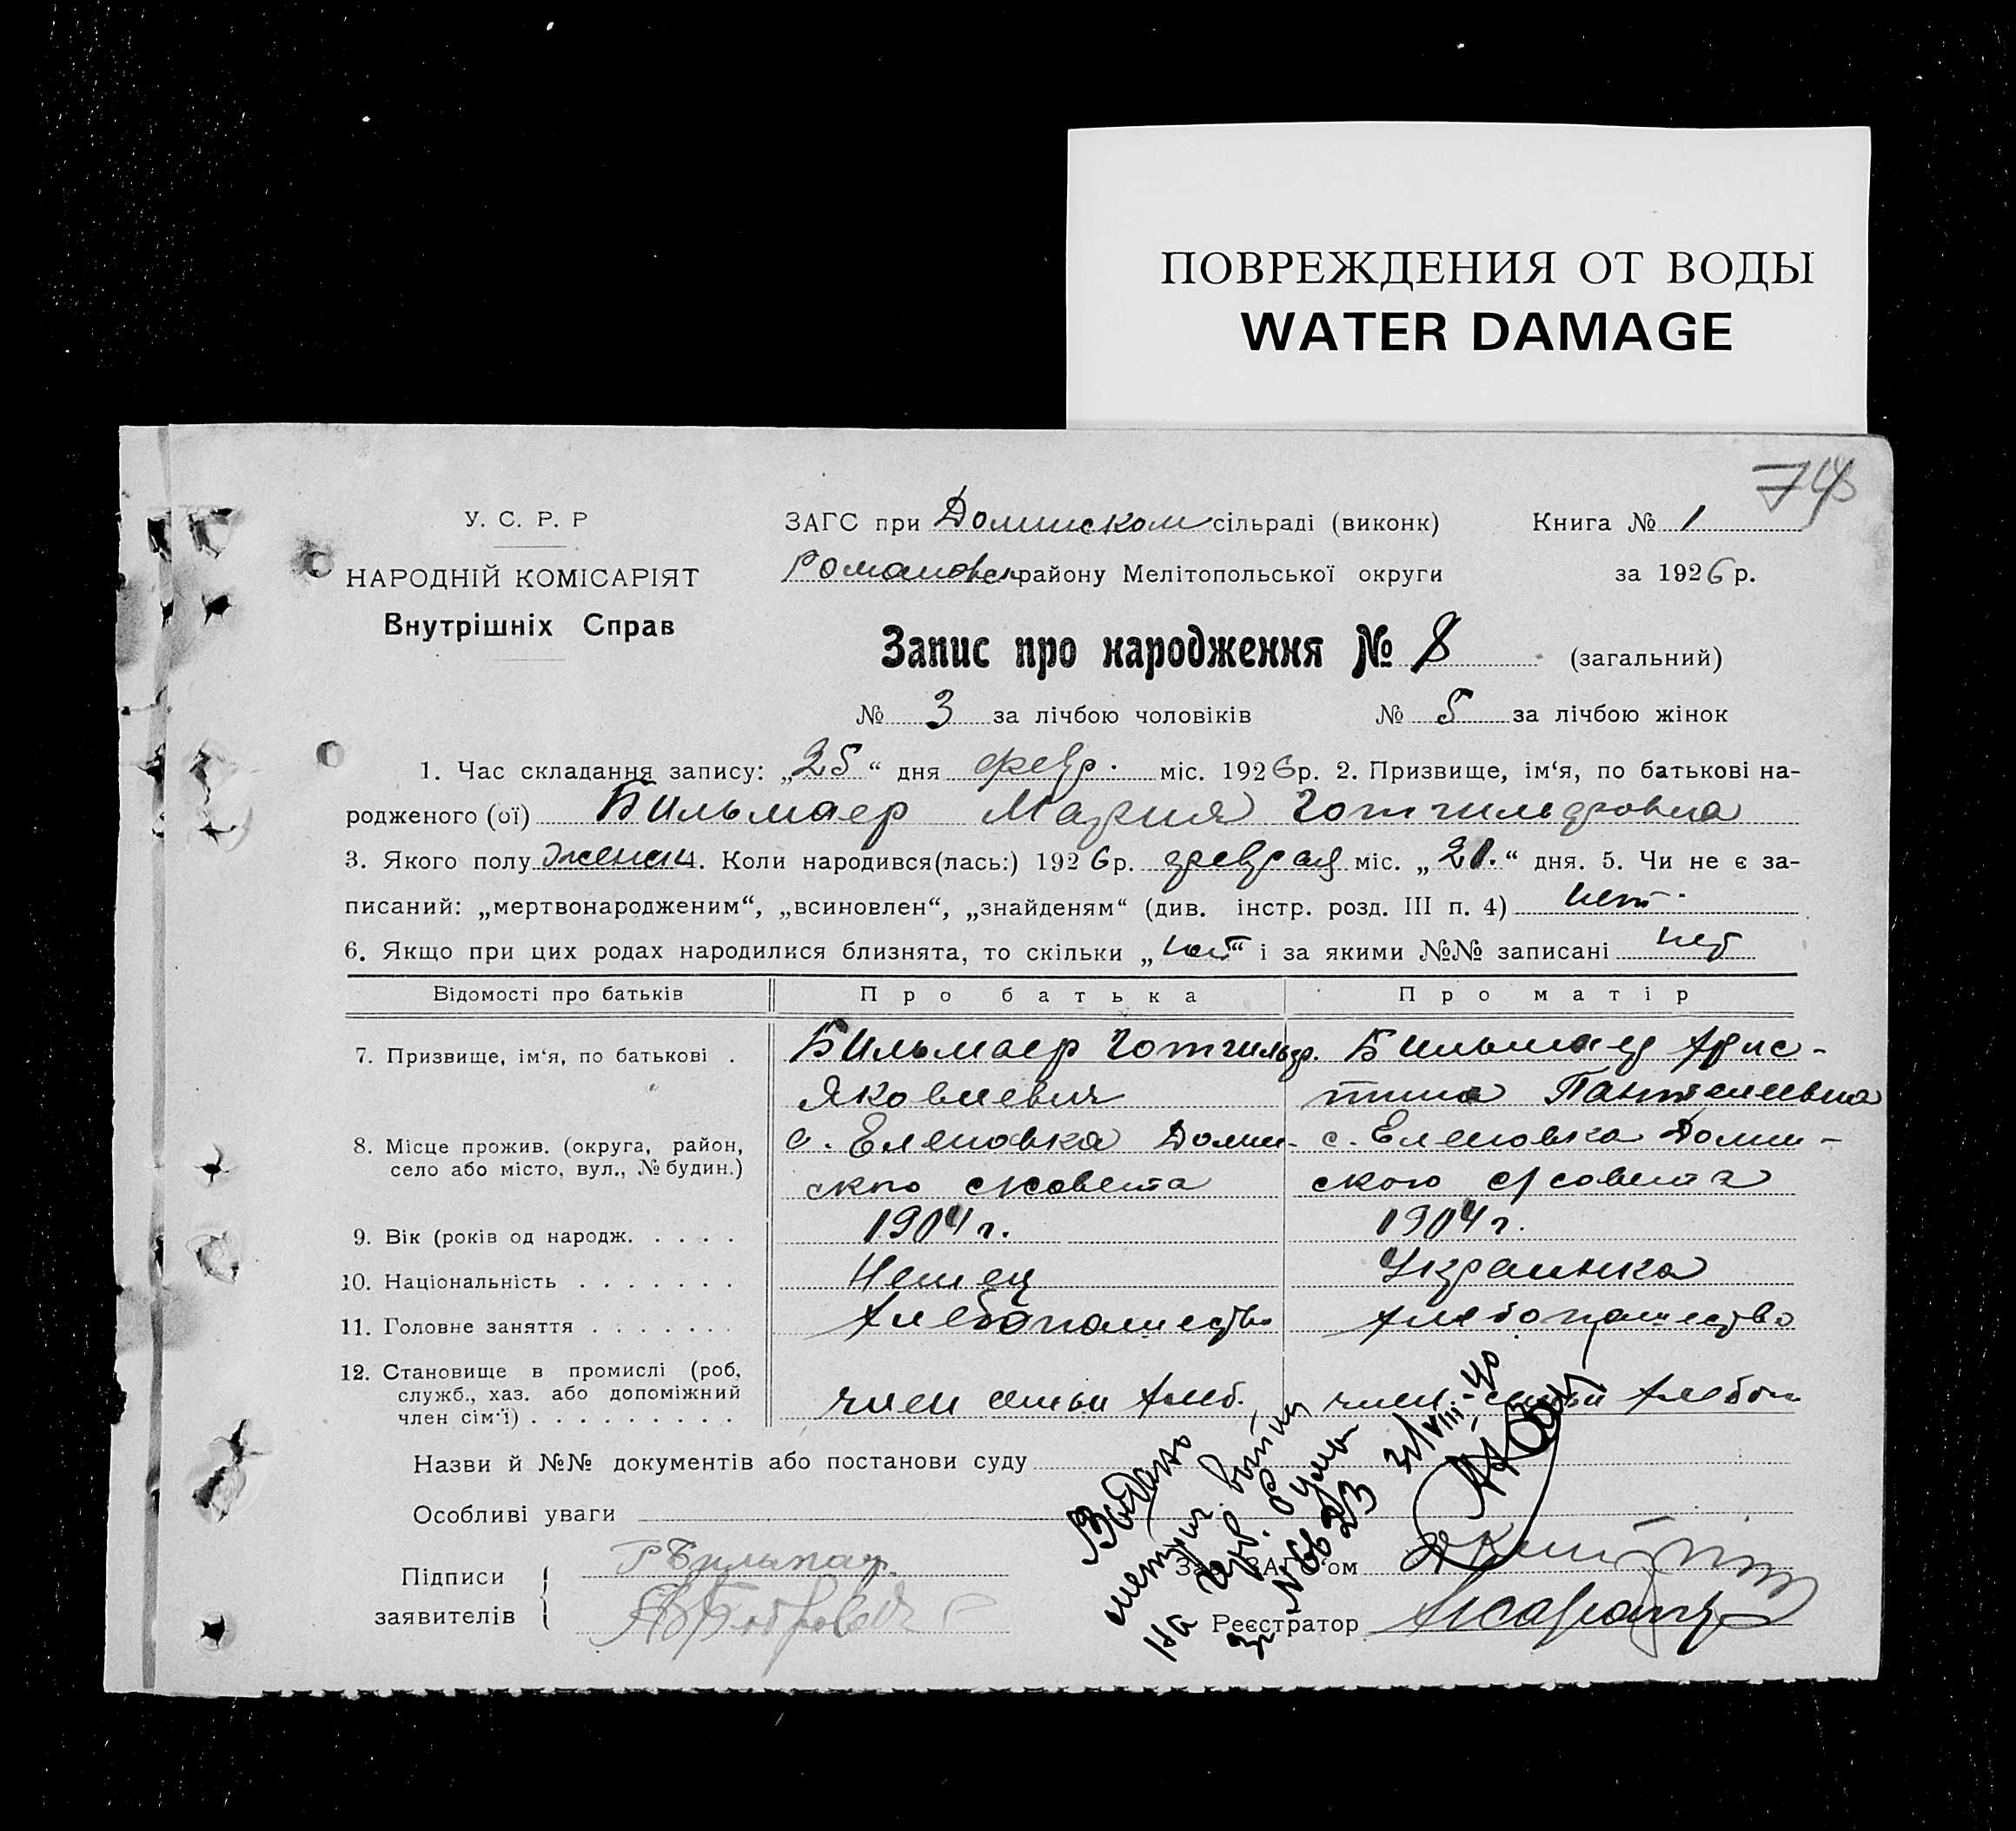 ПОВРЕЖДЕНИЯ ОТ ВОДЫ
WATER DAMAGE
У. С. Р. Р
НАРОДНІЙ КОМІСАРІЯТ
Внутрішніх Справ
ЗАГС при Долинском сільраді (виконк) Книга № 1
Романовск району Мелітопольської округи за 1926 р.
Запис про народження № 8 (загальний)
№ 3 за лічбою чоловіків № 5 за лічбою жінок
1. Час складання запису: „25“ дня февр. міс. 1926 р. 2. Призвище, ім‘я, по батькові на-
родженого (ої) Бильмаер Мария Готгильфовна
3. Якого полу женск 4. Коли народився(лась:) 1926 р. февраля міс. „21.“ дня. 5. Чи не є за-
писаний: „мертвонародженим“, „всиновлен“, „знайденям“ (див. інстр. розд. III п. 4) нет.
6. Якщо при цих родах народилися близнята, то скільки „нет“ і за якими №№ записані нет
Відомості про батьків Про батька Про матір
7. Призвище, ім‘я, по батькові . Бильмаер Готгильф. Бильмаер Хрис-
Яковлевич тина Пантелеевна
8. Місце прожив. (округа, район, село або місто, вул., № будин.) с. Еленовка Долин- с. Еленовка Долин-
ского с/совета ского с/совета
9. Вік (років од народж. . . . . 1904 г. 1904 г.
10. Національність . . . . . . . Немец Украинка
11. Головне заняття . . . . . . . Хлебопашество Хлебопашество
12. Становище в промислі (роб, служб., хаз. або допоміжний член сім‘ї) . . . . . . . . . член семьи хлеб. член семьи хлебоп
Назви й №№ документів або постанови суду
Особливі уваги
Підписи заявителів
Зав. ЗАГС‘ом
Реєстратор
Выдано
метрич. выпис
на герб. бумаге
31/VIII-40